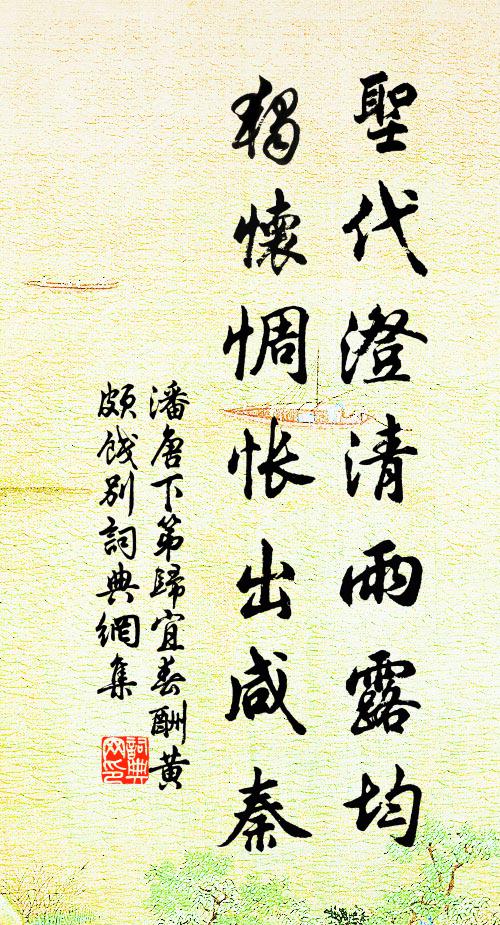 聖代澄清雨露均
獨懷惆悵出咸秦
潘唐下第歸宜春酬黃
頗餞別詞典網集
詞典